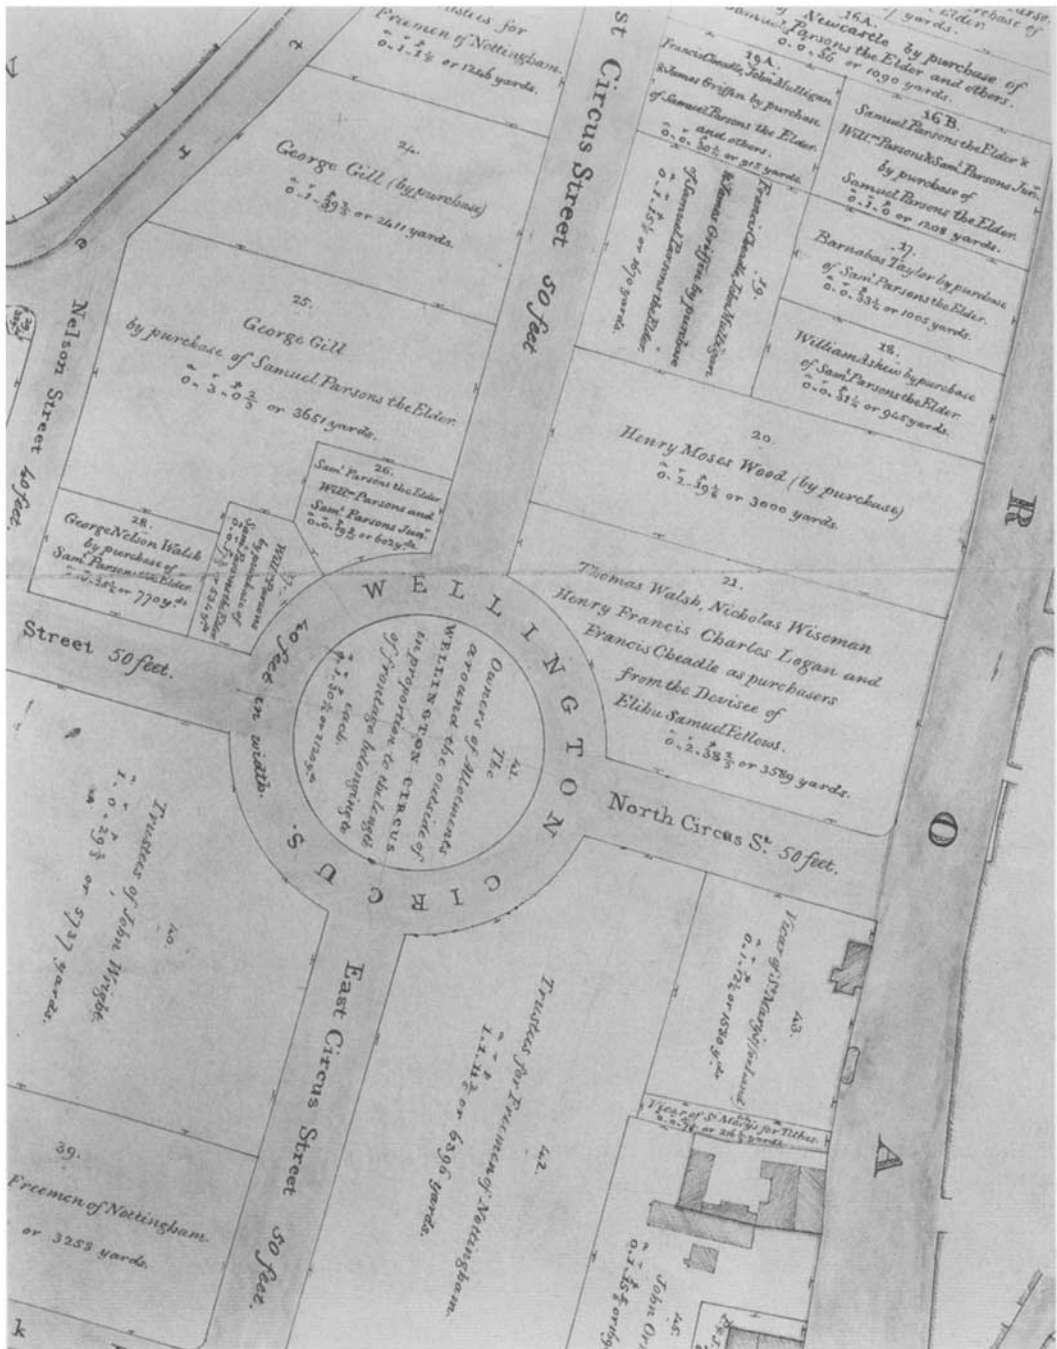 Freemen of Nottingham.
0. 1. 1¼ or 1246 yards.
24.
George Gill (by purchase)
0. 1. 39⅗ or 2411 yards.
25.
George Gill
by purchase of Samuel Parsons the Elder.
0. 3. 0⅔ or 3651 yards.
26.
Saml. Parsons the Elder
Willm. Parsons and
Saml. Parsons Junr.
or 602 yds.
27.
Willm. Parsons
by purchase of
Saml. Parsons the Elder
28.
George Nelson Walsh
by purchase of
Saml. Parsons the Elder
or 770 yds
Nelson Street 40 feet.
st Circus Street 50 feet
16A.
of Newcastle by purchase of
Samuel Parsons the Elder and others.
0. 0. 36 or 1090 yards.
19A.
Francis Cheadle, John Mulligan
& James Griffin by purchase
of Samuel Parsons the Elder
and others.
or 918 yards.
16B.
Samuel Parsons the Elder &
Willm. Parsons & Saml. Parsons Junr.
by purchase of
Samuel Parsons the Elder.
0. 1. 0 or 1208 yards.
17.
Barnabas Taylor by purchase
of Saml. Parsons the Elder.
0. 0. 33¼ or 1005 yards.
18.
William Askew by purchase
of Saml. Parsons the Elder.
0. 0. 31¼ or 945 yards.
19.
Francis Cheadle, John Mulligan
& James Griffin by purchase
of Samuel Parsons the Elder.
0. 1. 15¼ or 1670 yards.
20.
Henry Moses Wood (by purchase)
0. 2. 19⅙ or 3000 yards.
21.
Thomas Walsh, Nicholas Wiseman
Henry Francis Charles Logan and
Francis Cheadle as purchasers
from the Devisee of
Elihu Samuel Fellows.
0. 2. 38⅗ or 3589 yards.
WELLINGTON CIRCUS.
40 feet in width.
41.
The
Owners of Allotments
around the outside of
WELLINGTON CIRCUS
in proportion to the length
of frontage belonging to
each.
Street 50 feet.
North Circus St. 50 feet.
East Circus Street 50 feet.
40.
Trustees of John Wright.
1. 0. 29⅗ or 5737 yards.
39.
Freemen of Nottingham
or 3258 yards.
42.
Trustees for Freemen of Nottingham.
or 6396 yards.
43.
Vicar of St. Mary's
or 1580 yds
Vicar of St. Mary's for Tithes.
45.
John Or
R
O
A
k